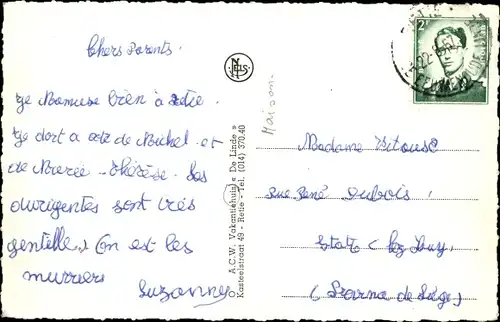 Chers Parents.
Je Mamuse bien à Retie.
Je dort a coté de Michel et
de Marie-Thérèse. Les
dirigentes sont très
gentille. On est les
murriers
Suzanne
NELS
O. A.C.W. Vakantiehuis « De Linde »
Kasteelstraat 49 - Retie - Tel. (014) 370.40
Maison
2
Madame
rue René Dubois
(lez Huy
de Liège)